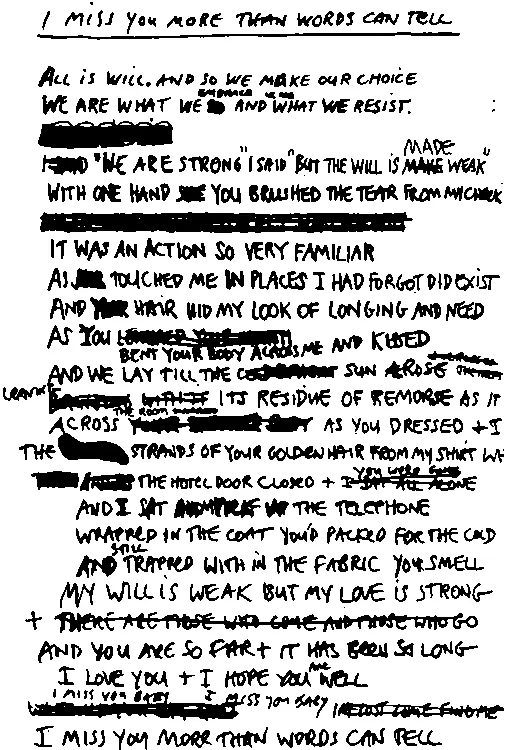 I MISS YOU MORE THAN WORDS CAN TELL
ALL IS WILL. AND SO WE MAKE OUR CHOICE
WE ARE WHAT WE EMBRACE AND WHAT WE RESIST.
MADE
"WE ARE STRONG" I SAID "BUT THE WILL IS MAKE WEAK"
WITH ONE HAND YOU BRUSHED THE TEAR FROM MY CHEEK
IT WAS AN ACTION SO VERY FAMILIAR
AS TOUCHED ME IN PLACES I HAD FORGOT DID EXIST
AND YOUR HAIR HID MY LOOK OF LONGING AND NEED
AS YOU
BENT YOUR BODY ACROSS ME AND KISSED
AND WE LAY TILL THE SUN AROSE
ITS RESIDUE OF REMORSE AS IT
THE ROOM
ACROSS AS YOU DRESSED + I
THE STRANDS OF YOUR GOLDEN HAIR FROM MY SHIRT
YOU WERE GONE
THE HOTEL DOOR CLOSED + I SAT ALL ALONE
AND I SAT THE TELEPHONE
WRAPPED IN THE COAT YOU'D PACKED FOR THE COLD
STILL
AND TRAPPED WITH IN THE FABRIC YOU SMELL
MY WILL IS WEAK BUT MY LOVE IS STRONG
+ THERE ARE THOSE WHO COME AND THOSE WHO GO
AND YOU ARE SO FAR + IT HAS BEEN SO LONG
I LOVE YOU + I HOPE YOU ARE WELL
I MISS YOU BABY I MISS YOU BABY
I MISS YOU MORE THAN WORDS CAN TELL